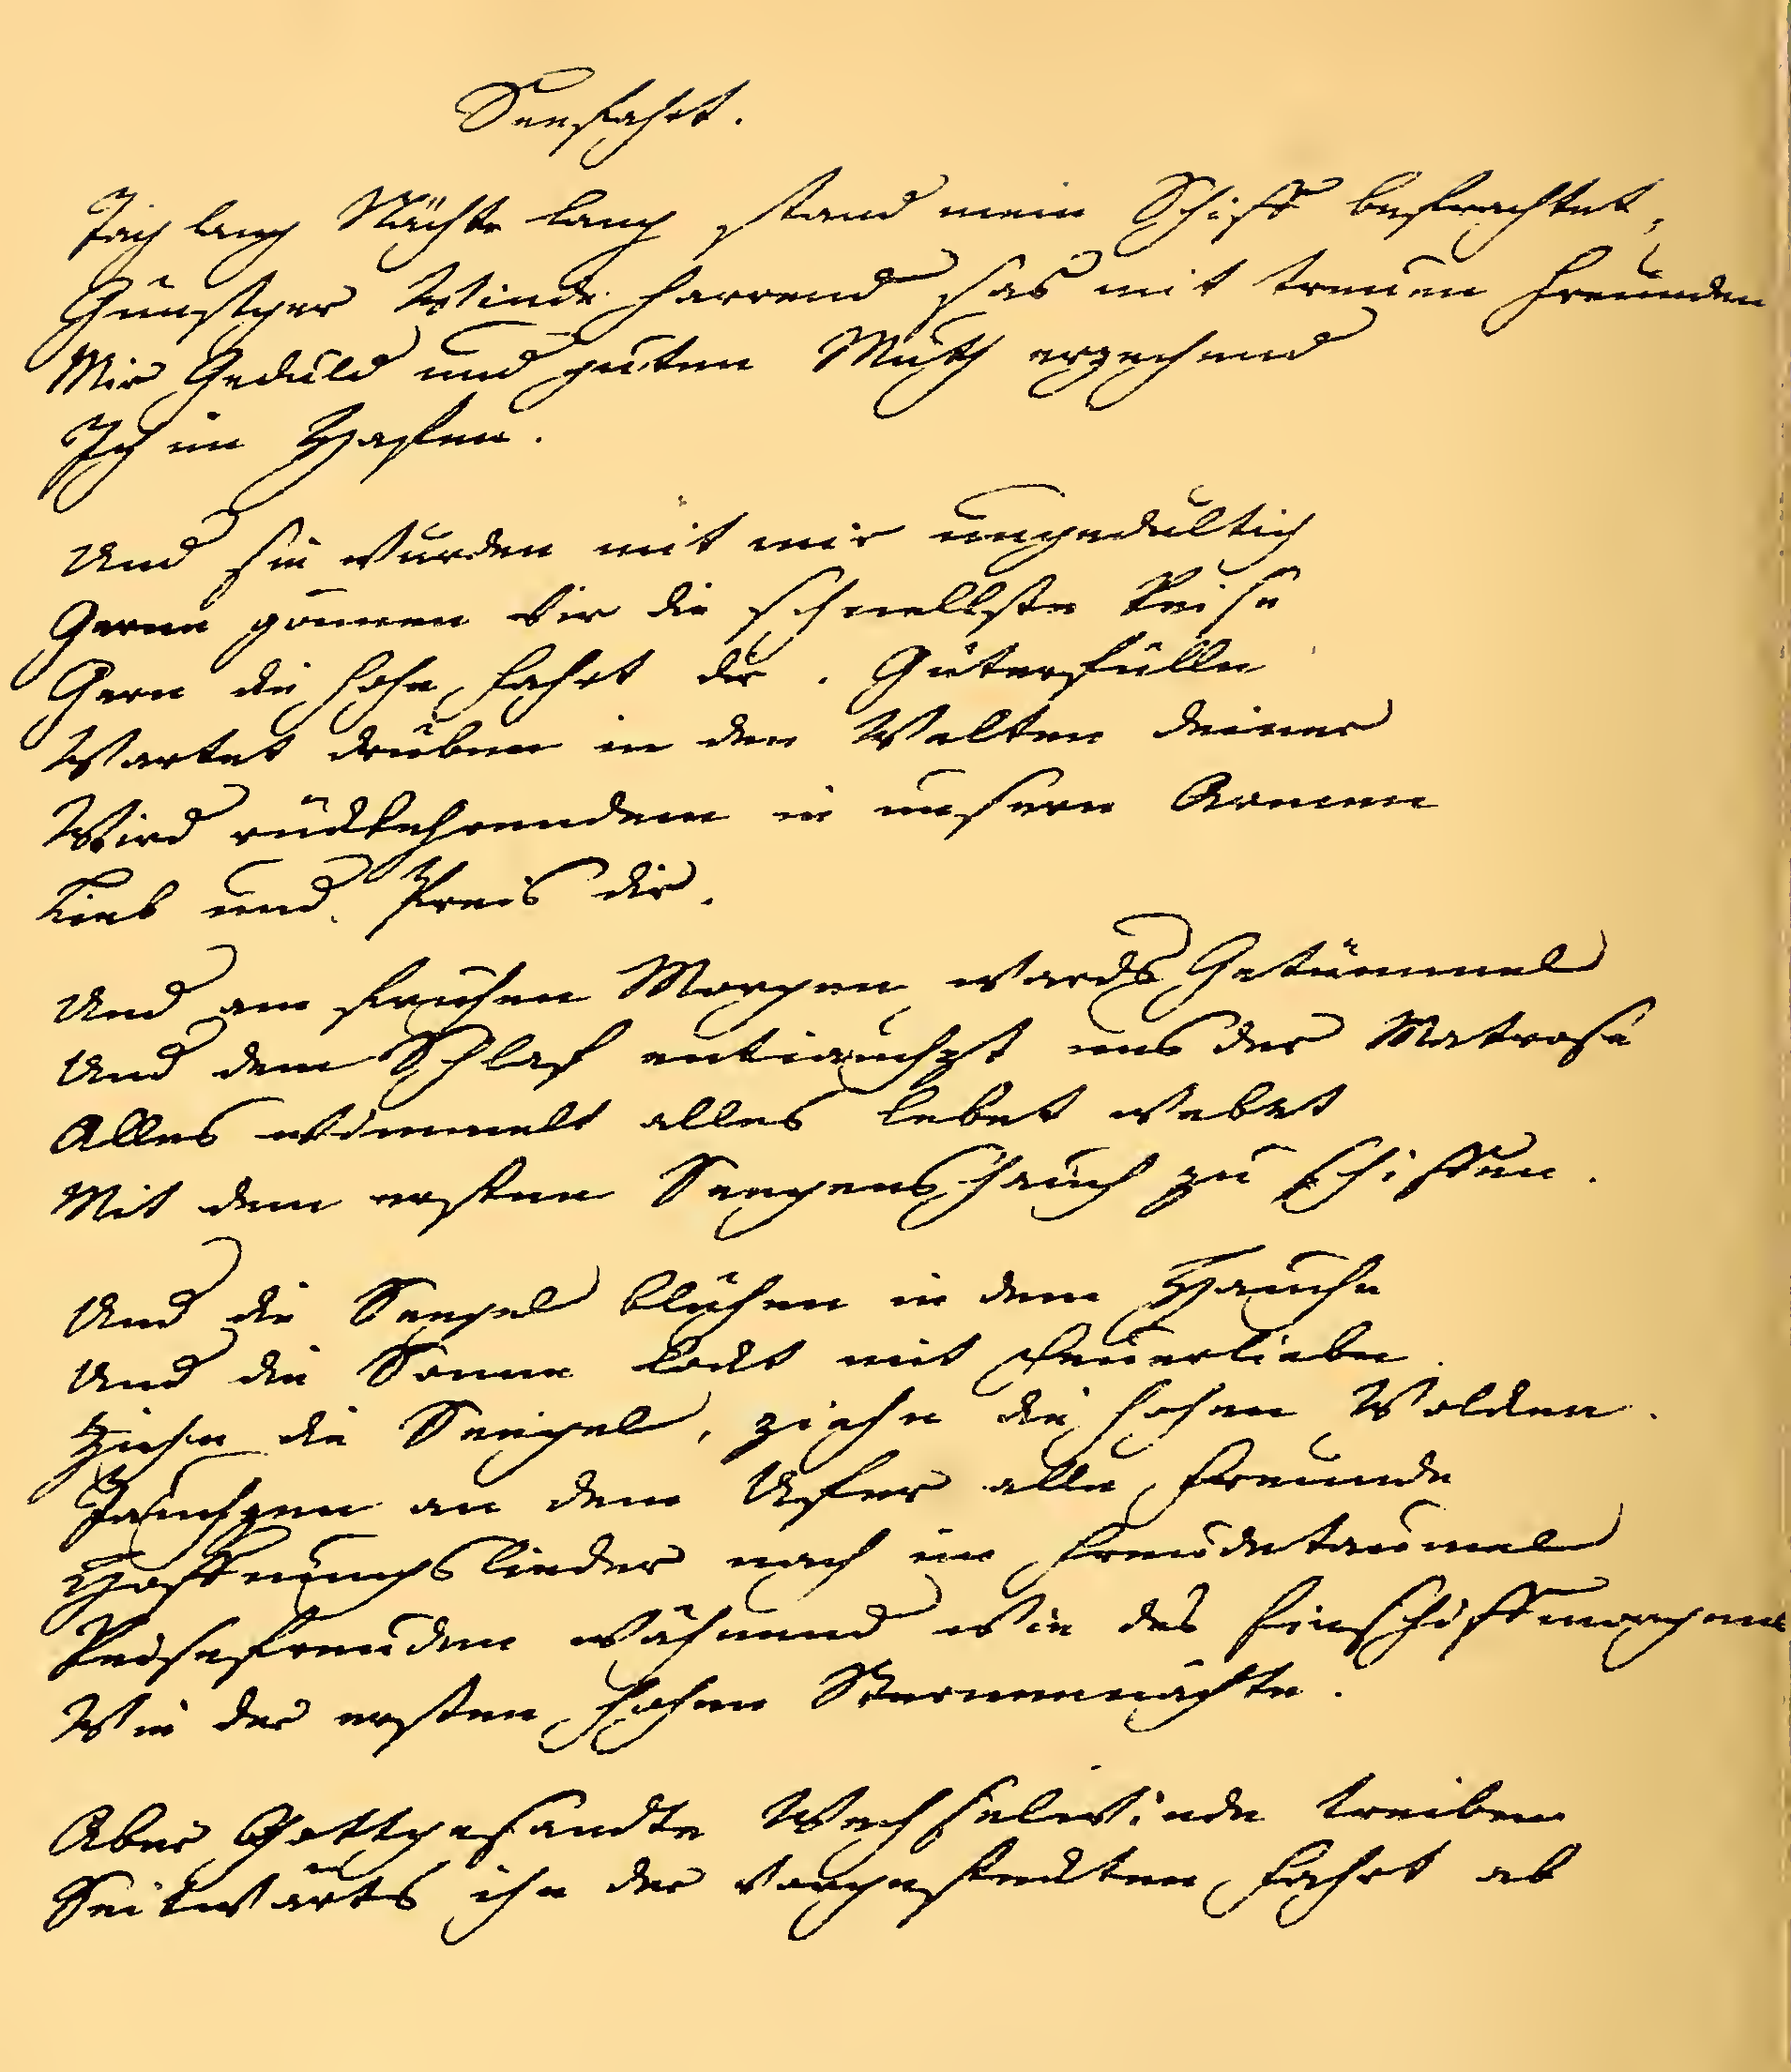 Seefahrt.
Tag lang Nächte lang stand mein Schiff befrachtet,
Günstger Winde harrend sas mit treuen Freunden
Mir Geduld und guten Muth erzechend
Ich im Hafen.
Und sie wurden mit mir ungedultig
Gerne gönnen wir die schnellste Reise
Gern die hohe Fahrt dir. Güterfülle
Wartet drüben in den Welten deiner
Wird rückkehrendem in unsern Armen
Lieb und Preis dir.
Und am frühen Morgen wards Getümmel
Und dem Schlaf entiauchzt uns der Matrose
Alles wimmelt alles lebet webet
Mit dem ersten Seegenshauch zu schiffen.
Und die Seegel blühen in dem Hauche
Und die Sonne lockt mit Feuerliebe.
Ziehn die Seegel, ziehn die hohen Wolcken.
Jauchzen an dem Ufer alle Freunde
Hoffnungslieder nach im Freudetaumel
Reisefreuden wähnend wie des Einschiffmorgens
Wie der ersten hohen Sternennächte.
Aber Gottgesandte Wechselwinde treiben
Seitwärts ihn der vorgesteckten Fahrt ab